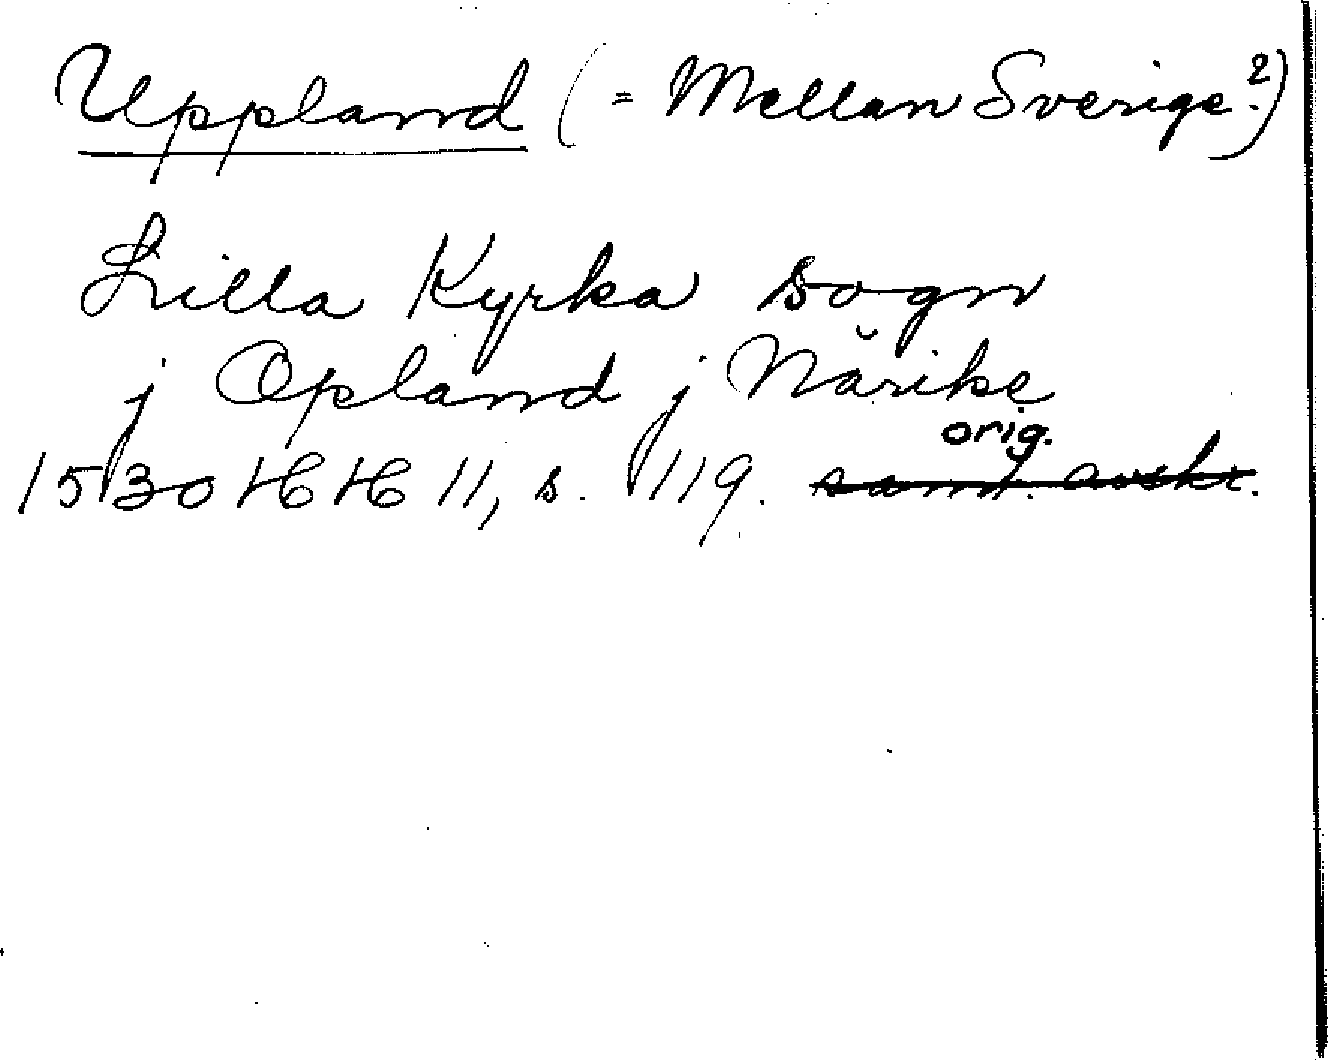 Uppland (= Mellan Sverige?)
Lilla Kyrka sogn
j Opland j Närike
orig.
1530 HH 11, s. 119. samt. avskr.